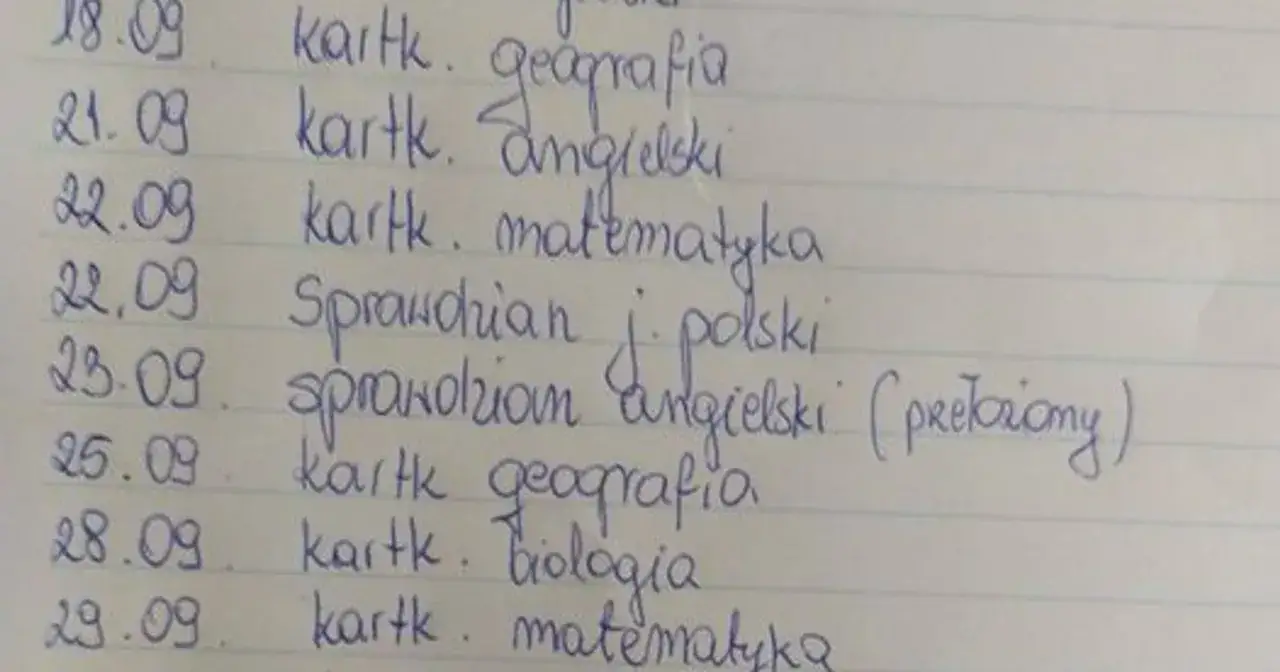 18.09 kartk. geografia
21.09 kartk. angielski
22.09 kartk. matematyka
22.09 Sprawdzian j. polski
23.09 sprawdzian angielski (przełożony)
25.09 kartk geografia
28.09 kartk. biologia
29.09 kartk. matematyka